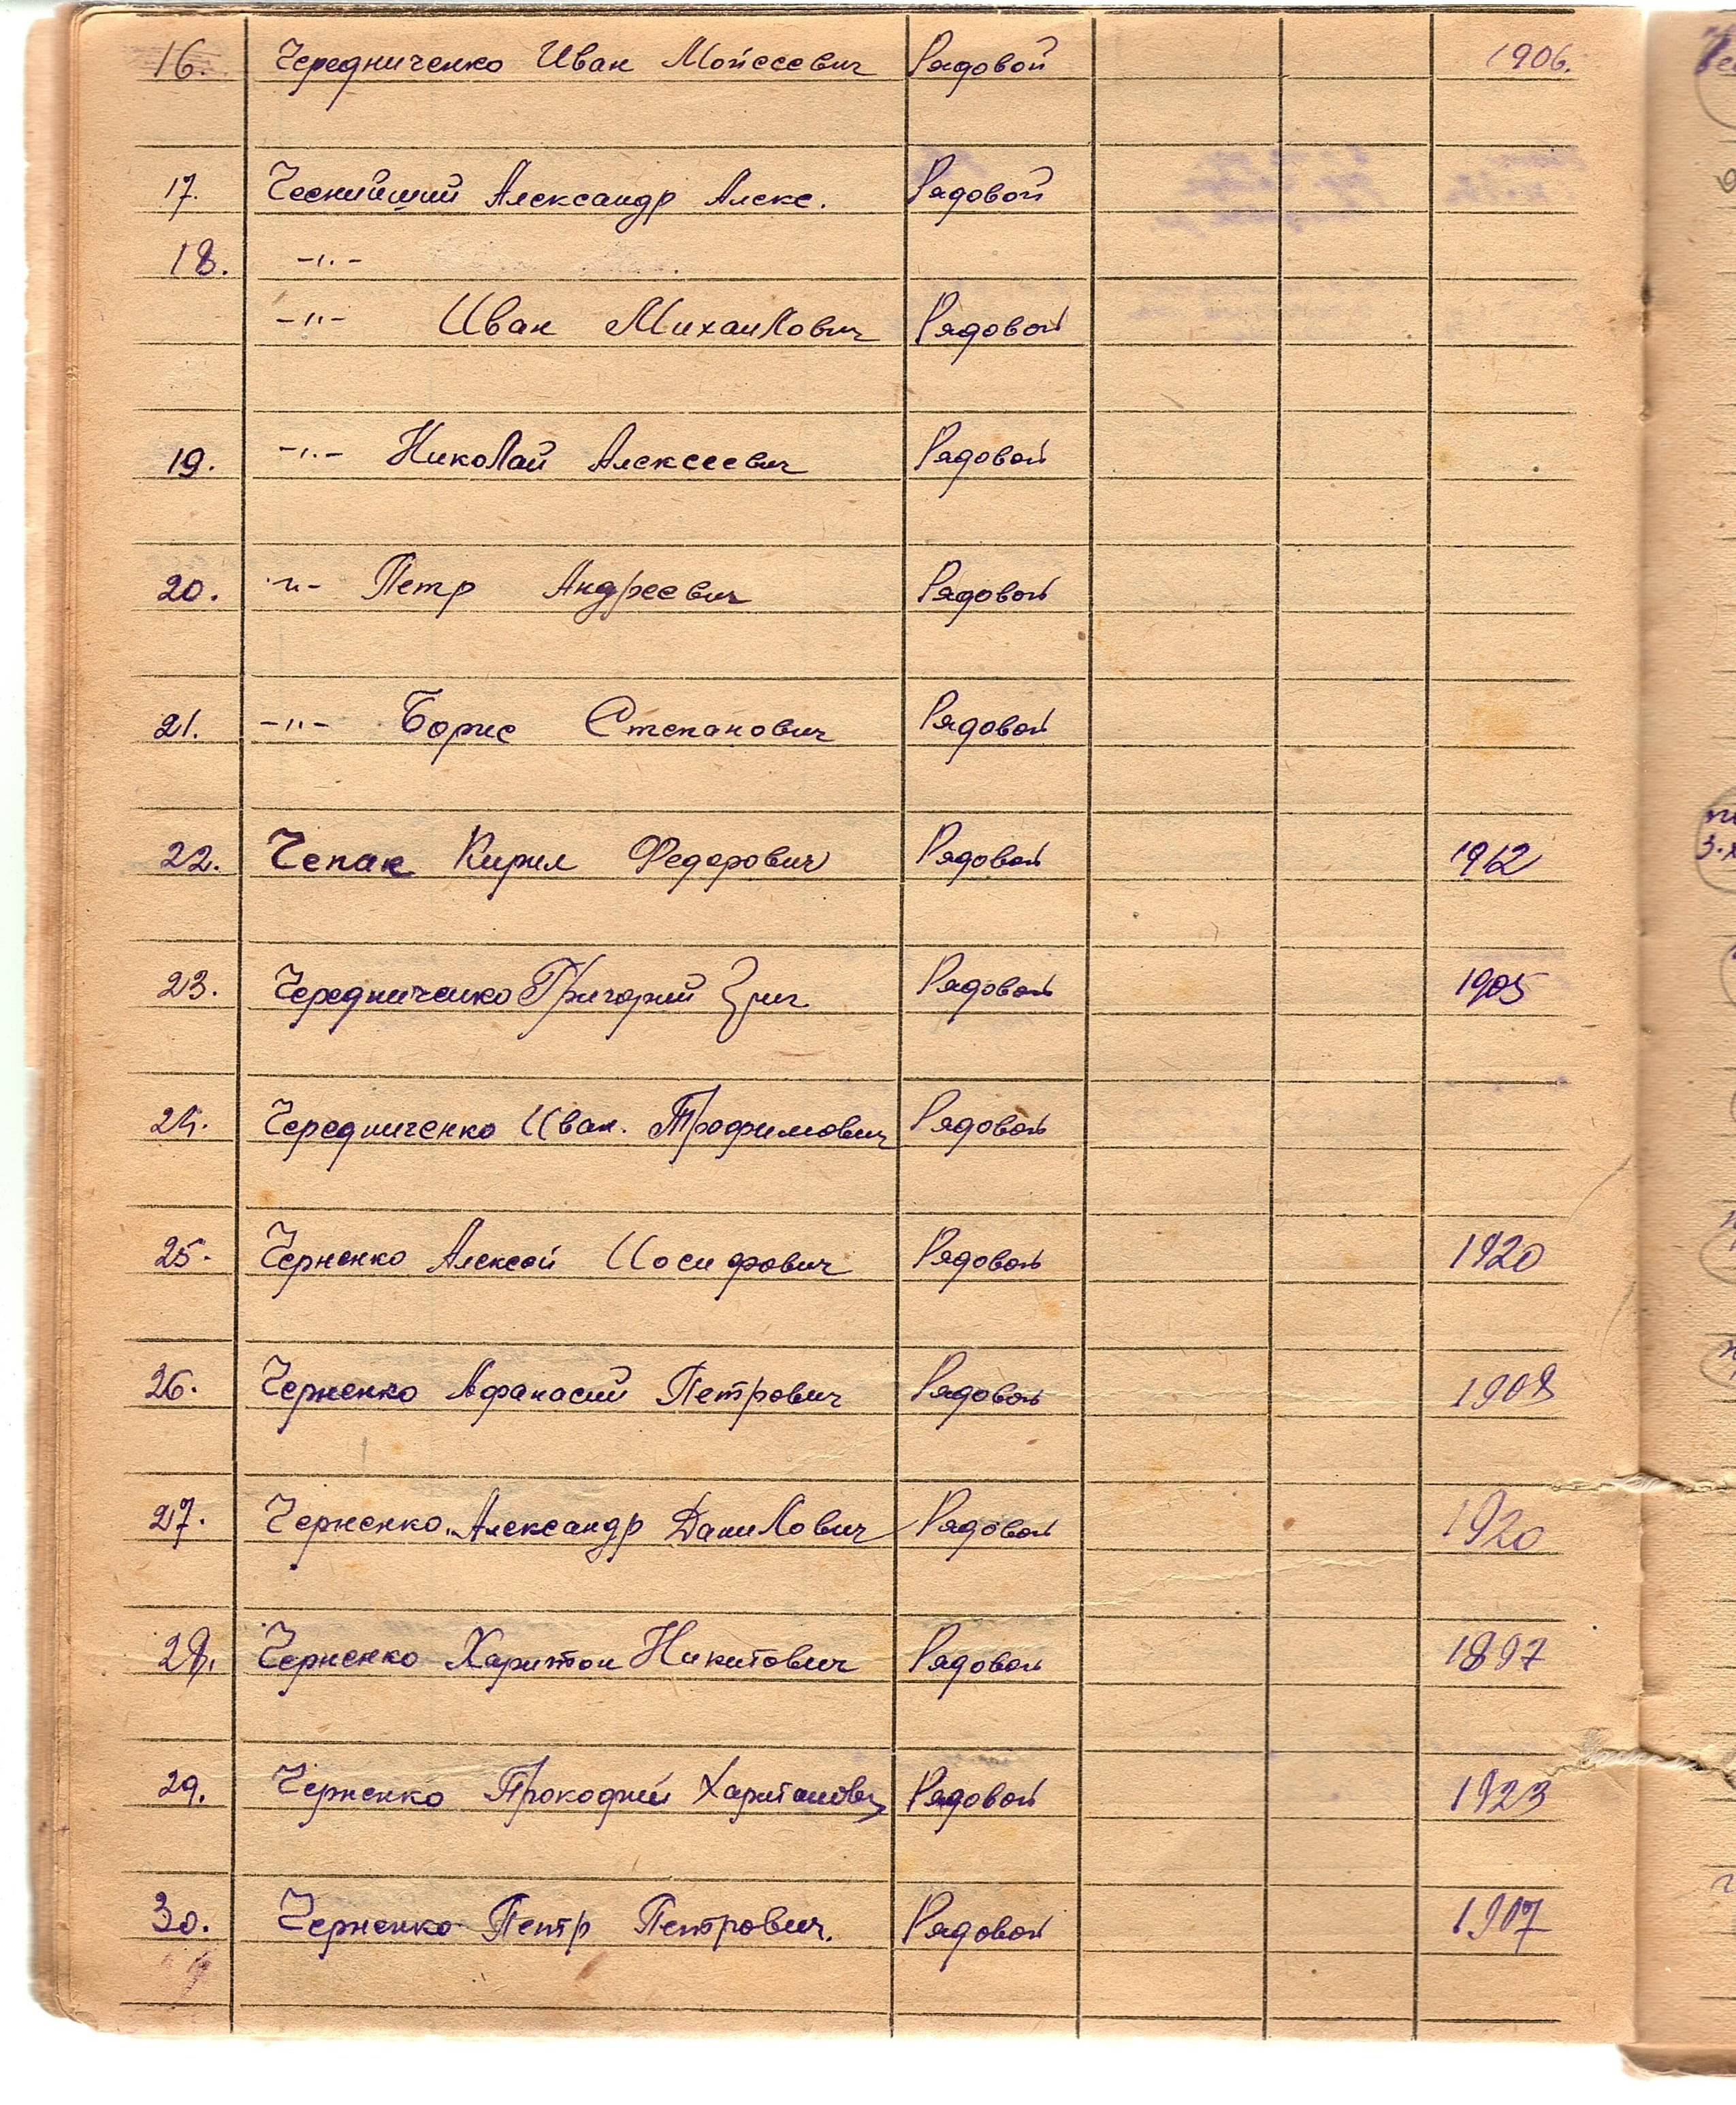 16. Чередниченко Иван Мойсеевич Рядовой 1906.
17. Чеснийший Александр Алекс. Рядовой
18. -"-
-"- Иван Михайлович Рядовой
19. -"- Николай Алексеевич Рядовой
20. -"- Петр Андреевич Рядовой
21. -"- Борис Степанович Рядовой
22. Чепак Кирил Федорович Рядовой 1912
23. Чередниченко Григорий Рядовой 1905
24. Чередниченко Иван. Трофимович Рядовой
25. Черненко Алексей Иосифович Рядовой 1920
26. Черненко Афанасий Петрович Рядовой 1908
27. Черненко Александр Данилович Рядовой 1920
28. Черненко Харитон Никитович Рядовой 1897
29. Черненко Прокофий Харитонович Рядовой 1923
30. Черненко Петр Петрович. Рядовой 1907